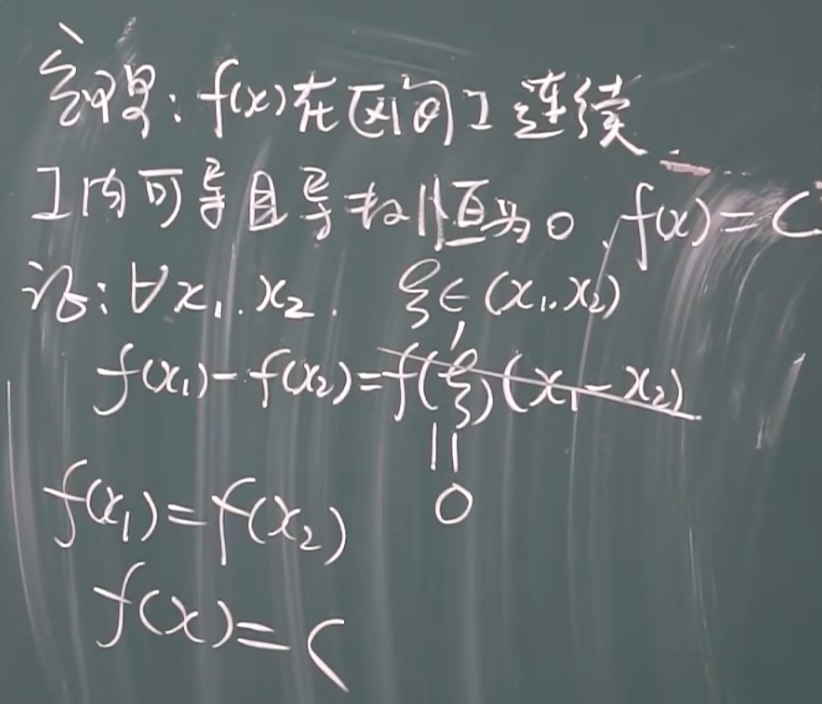 定理：f(x)在区间I连续
I内可导且导数恒为0，f(x)=C
证：∀x₁.x₂. ξ∈(x₁,x₂)
f(x₁)-f(x₂)=f'(ξ)(x₁-x₂)
||
0
f(x₁)=f(x₂)
f(x)=C